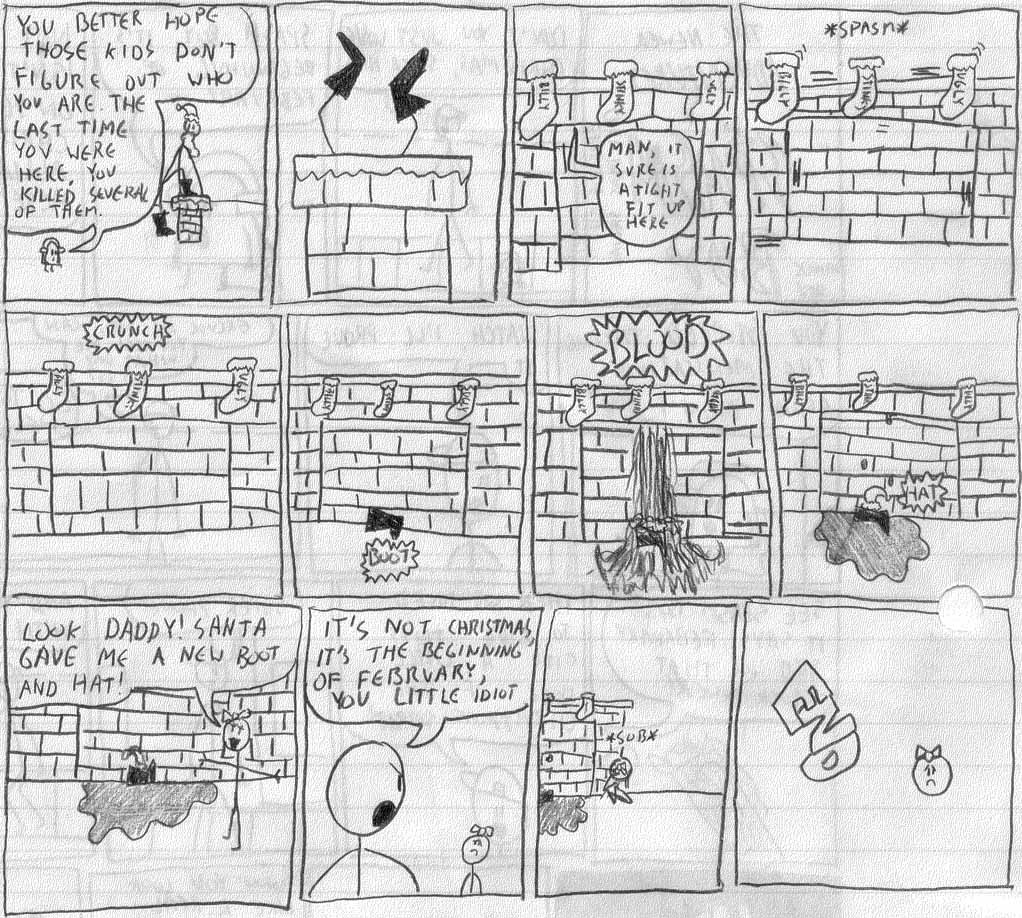 YOU BETTER HOPE
THOSE KIDS DON'T
FIGURE OUT WHO
YOU ARE. THE
LAST TIME
YOU WERE
HERE, YOU
KILLED SEVERAL
OF THEM.
BILLY
STINKY
UGLY
MAN, IT
SURE IS
A TIGHT
FIT UP
HERE
*SPASM*
BILLY
STINK
UGLY
CRUNCH
BILLY
STINK
UGLY
BILLY
UGLY
BOOT
BLOOD
BILLY
BILLY
UGLY
HAT
LOOK DADDY! SANTA
GAVE ME A NEW BOOT
AND HAT!
IT'S NOT CHRISTMAS,
IT'S THE BEGINNING
OF FEBRUARY,
YOU LITTLE IDIOT
*SOB*
END